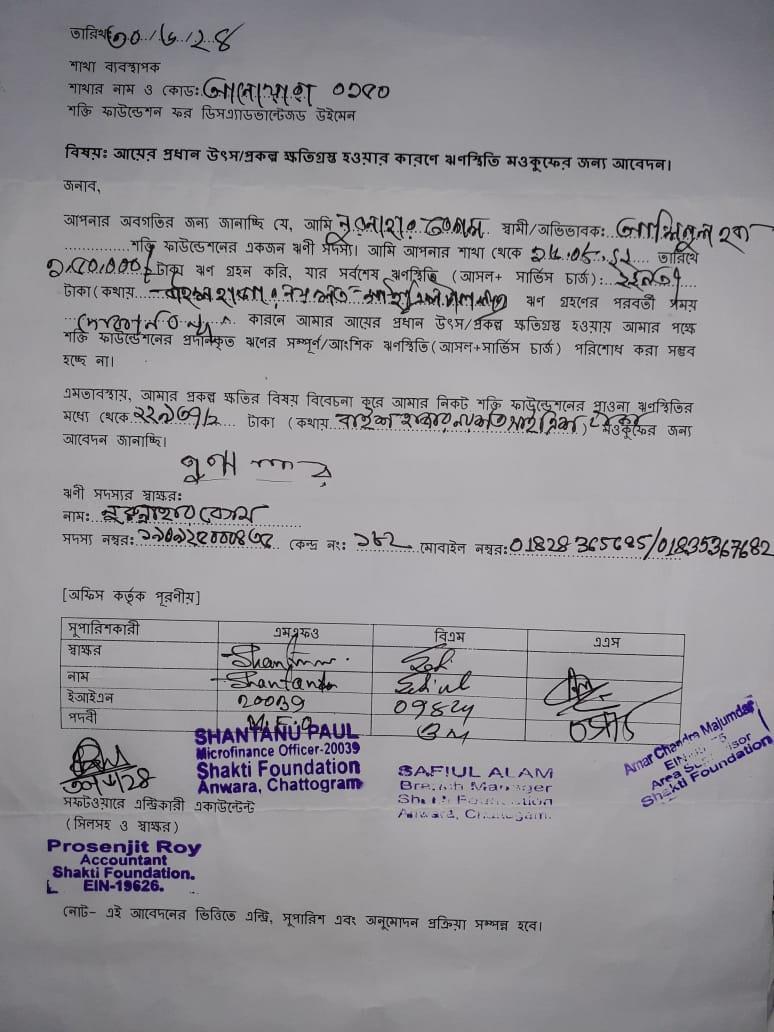 তারিখঃ ৩০/৬/২৪
শাখা ব্যবস্থাপক
শাখার নাম ও কোড: আনোয়ারা ০১৫০
শক্তি ফাউন্ডেশন ফর ডিসএ্যাডভান্টেজড উইমেন
বিষয়: আয়ের প্রধান উৎস/প্রকল্প ক্ষতিগ্রস্থ হওয়ার কারণে ঋণস্থিতি মওকুফের জন্য আবেদন।
জনাব,
আপনার অবগতির জন্য জানাচ্ছি যে, আমি বেগম স্বামী/অভিভাবক: হক
শক্তি ফাউন্ডেশনের একজন ঋণী সদস্য। আমি আপনার শাখা থেকে তারিখে
টাকা ঋণ গ্রহন করি, যার সর্বশেষ ঋণস্থিতি (আসল+ সার্ভিস চার্জ):
টাকা (কথায় ঋণ গ্রহণের পরবর্তী সময়
কারনে আমার আয়ের প্রধান উৎস/প্রকল্প ক্ষতিগ্রস্থ হওয়ায় আমার পক্ষে
শক্তি ফাউন্ডেশনের প্রদানকৃত ঋণের সম্পূর্ণ/আংশিক ঋণস্থিতি(আসল+সার্ভিস চার্জ) পরিশোধ করা সম্ভব
হচ্ছে না।
এমতাবস্থায়, আমার প্রকল্প ক্ষতির বিষয় বিবেচনা করে আমার নিকট শক্তি ফাউন্ডেশনের পাওনা ঋণস্থিতির
মধ্যে থেকে ২২৯৩৭/২ টাকা (কথায় ) মওকুফের জন্য
আবেদন জানাচ্ছি।
ঋণী সদস্যর স্বাক্ষর:
নাম: নুরুন্নাহার বেগম
সদস্য নম্বর: কেন্দ্র নং: ১৮২ মোবাইল নম্বর: 01828365685/01835367682
[অফিস কর্তৃক পূরণীয়]
সুপারিশকারী এমএফও বিএম এএস
স্বাক্ষর
নাম Shantanu Safiul
ইআইএন 20039 09824
পদবী M.F.O BM
SHANTANU PAUL
Microfinance Officer-20039
Shakti Foundation
Anwara, Chattogram
SAFIUL ALAM
Branch Manager
Shakti Foundation
Anwara, Chattogram.
Amar Chandra Majumdar
EIN
Area Supervisor
Shakti Foundation
সফটওয়ারে এন্ট্রিকারী একাউন্টেন্ট
(সিলসহ ও স্বাক্ষর)
Prosenjit Roy
Accountant
Shakti Foundation.
EIN-19626.
নোট- এই আবেদনের ভিত্তিতে এন্ট্রি, সুপারিশ এবং অনুমোদন প্রক্রিয়া সম্পন্ন হবে।